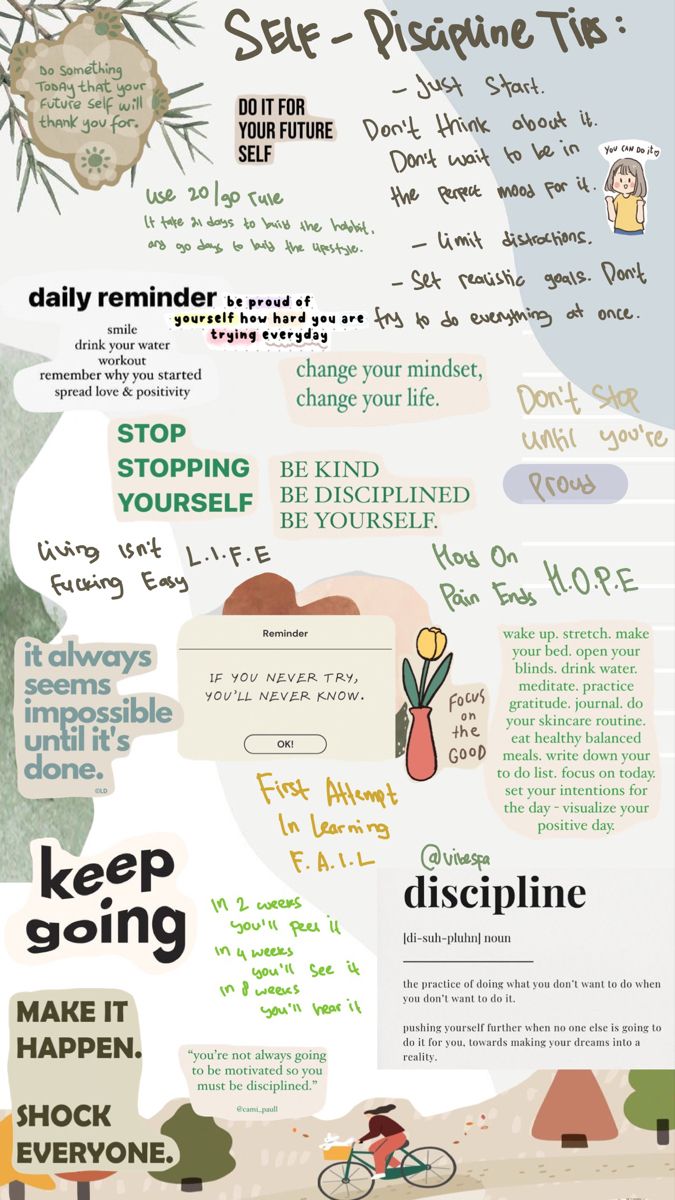 SELF - Discipline Tips:
Do Something
Today that your
future self will
thank you for.
DO IT FOR
YOUR FUTURE
SELF
- Just Start.
Don't think about it.
Don't wait to be in
the perfect mood for it.
YOU CAN DO it
- Limit distractions.
- Set realistic goals. Don't
try to do everything at once.
use 20/90 rule
It take 21 days to build the habbit,
and 90 days to build the lifestyle.
daily reminder
smile
drink your water
workout
remember why you started
spread love & positivity
be proud of
yourself how hard you are
trying everyday
change your mindset,
change your life.
Don't Stop
until you're
Proud
STOP
STOPPING
YOURSELF
BE KIND
BE DISCIPLINED
BE YOURSELF.
Living Isn't
Fucking Easy
L.I.F.E
Hold On
Pain Ends
H.O.P.E
it always
seems
impossible
until it's
done.
©LD
Reminder
IF YOU NEVER TRY,
YOU'LL NEVER KNOW.
OK!
FOCUS
on
the
GOOD
wake up. stretch. make
your bed. open your
blinds. drink water.
meditate. practice
gratitude. journal. do
your skincare routine.
eat healthy balanced
meals. write down your
to do list. focus on today.
set your intentions for
the day - visualize your
positive day.
First Attempt
In Learning
F.A.I.L
@vibespa
keep
going
In 2 weeks
you'll feel it
In 4 weeks
you'll see it
In 8 weeks
you'll hear it
discipline
[di-suh-pluhn] noun
the practice of doing what you don't want to do when
you don't want to do it.
pushing yourself further when no one else is going to
do it for you, towards making your dreams into a
reality.
MAKE IT
HAPPEN.
SHOCK
EVERYONE.
"you're not always going
to be motivated so you
must be disciplined."
@cami_paull